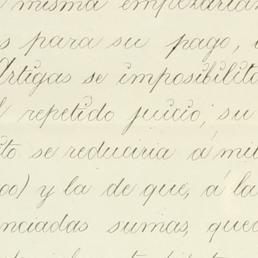 misma empezarian
s para su pago,
Artigas se imposibilito
repetido juicio; su
ito se reduciria á mu
00) y la de que, á la
nciadas sumas, qued